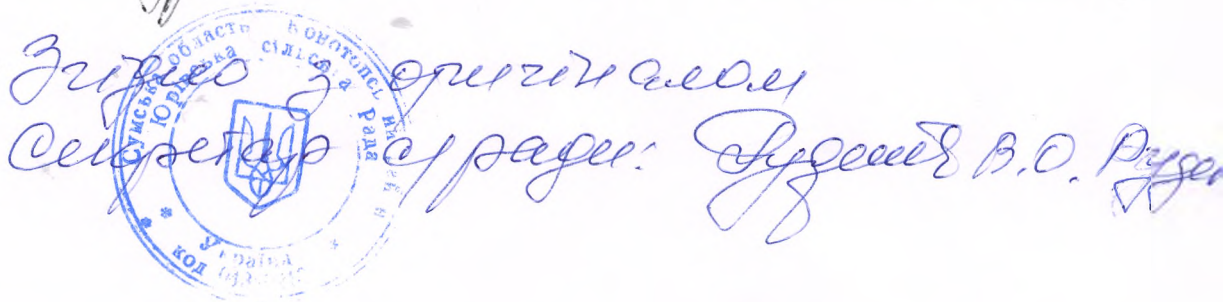 Згідно з оригіналом
Секретар с/ради: В.О. Руден
Сумська область Конотопський
Юр'ївська сільська Рада
Україна
* код